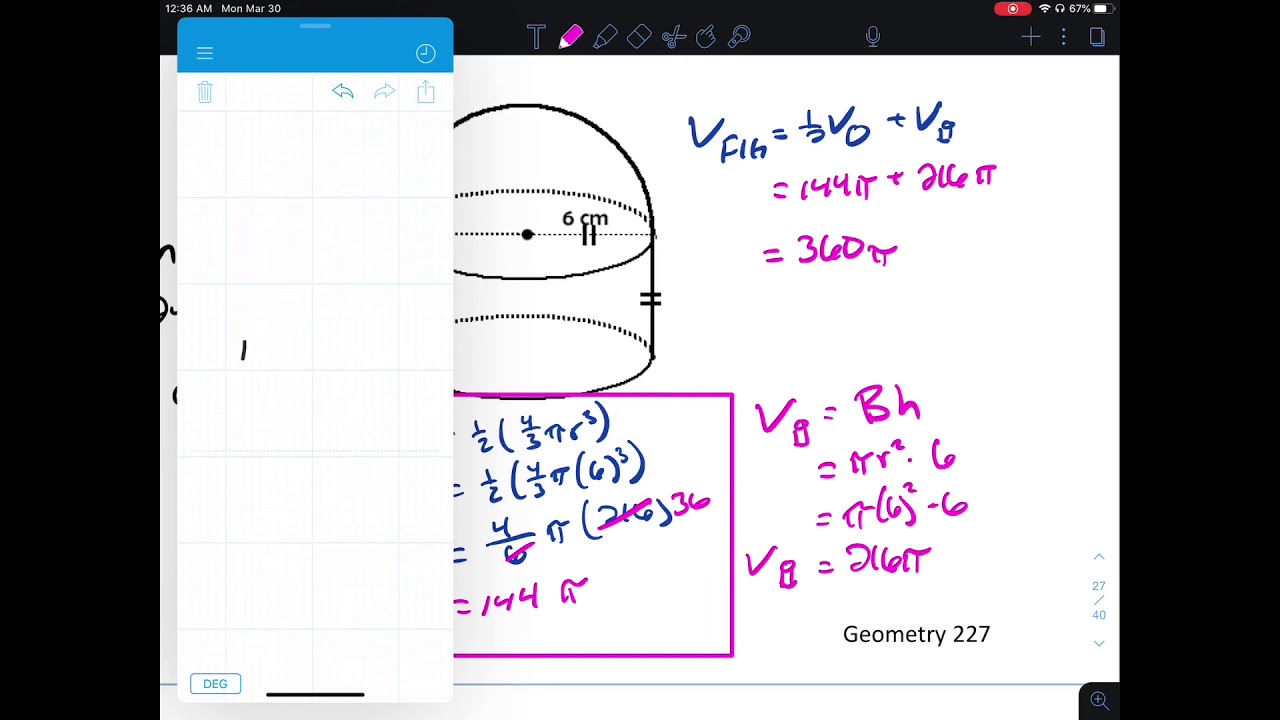 12:36 AM Mon Mar 30
67%
T
V_Fig = ½V_O + V
= 144π + 216π
= 360π
6 cm
= ½(4/3πr³)
= ½(4/3π(6)³)
= 4/6 π(216) 36
= 144 π
V = Bh
= πr² · 6
= π(6)² · 6
V = 216π
Geometry 227
27
/
40
DEG